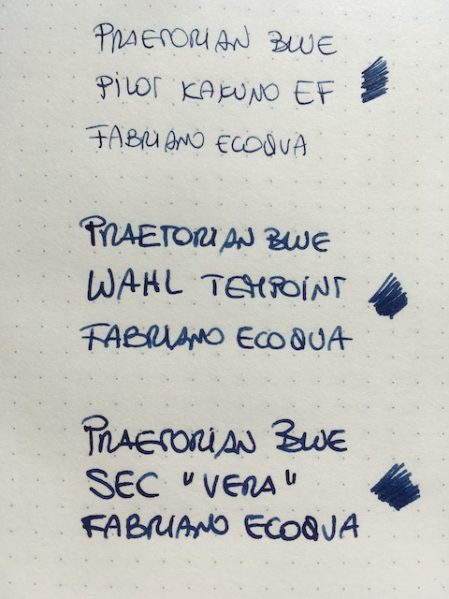 PRAETORIAN BLUE
PILOT KAKUNO EF
FABRIANO ECOQUA
PRAETORIAN BLUE
WAHL TEMPOINT
FABRIANO ECOQUA
PRAETORIAN BLUE
SEC "VERA"
FABRIANO ECOQUA